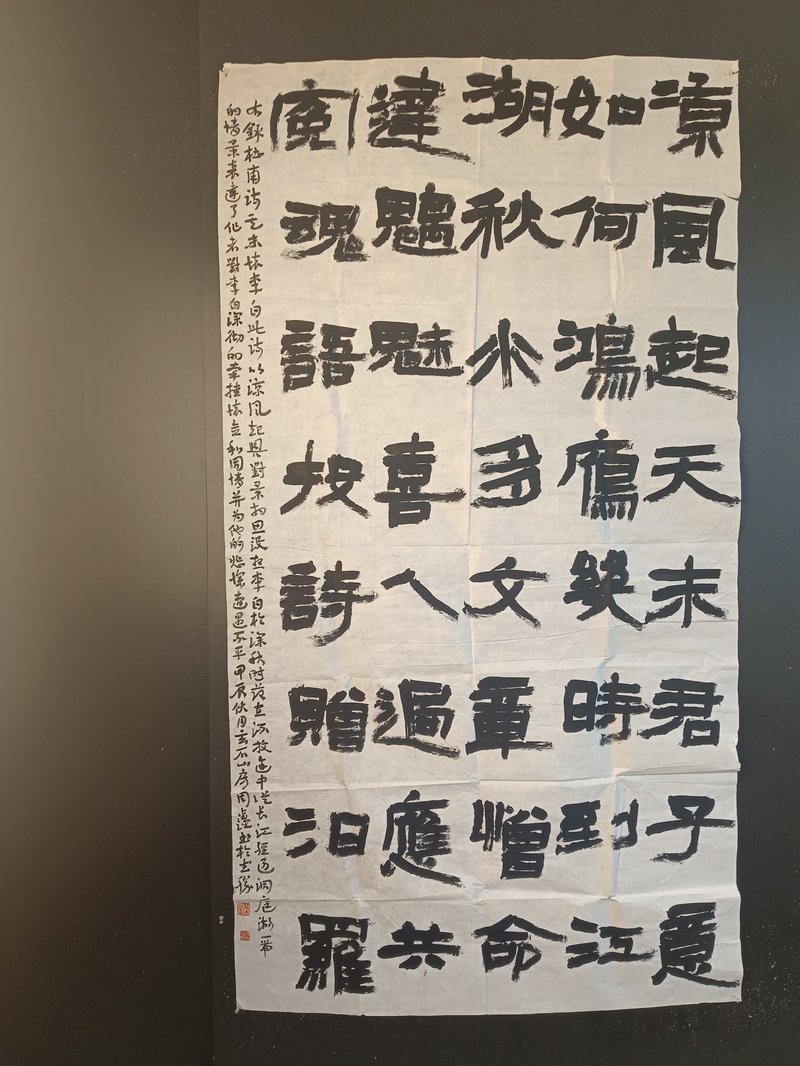 涼風起天末君子意
如何鴻鴈幾時到江
湖秋水多文章憎命
達魑魅喜人過應共
冤魂語投詩贈汨羅
右錄杜甫詩天末懷李白此詩以涼風起興對景相思設想李白於深秋時節在流放途中從长江經過洞庭湖一帶
的情景表達了作者對李白深切的牽掛懷念和同情并为他的悲慘遭遇不平甲辰伏月玄石山房周